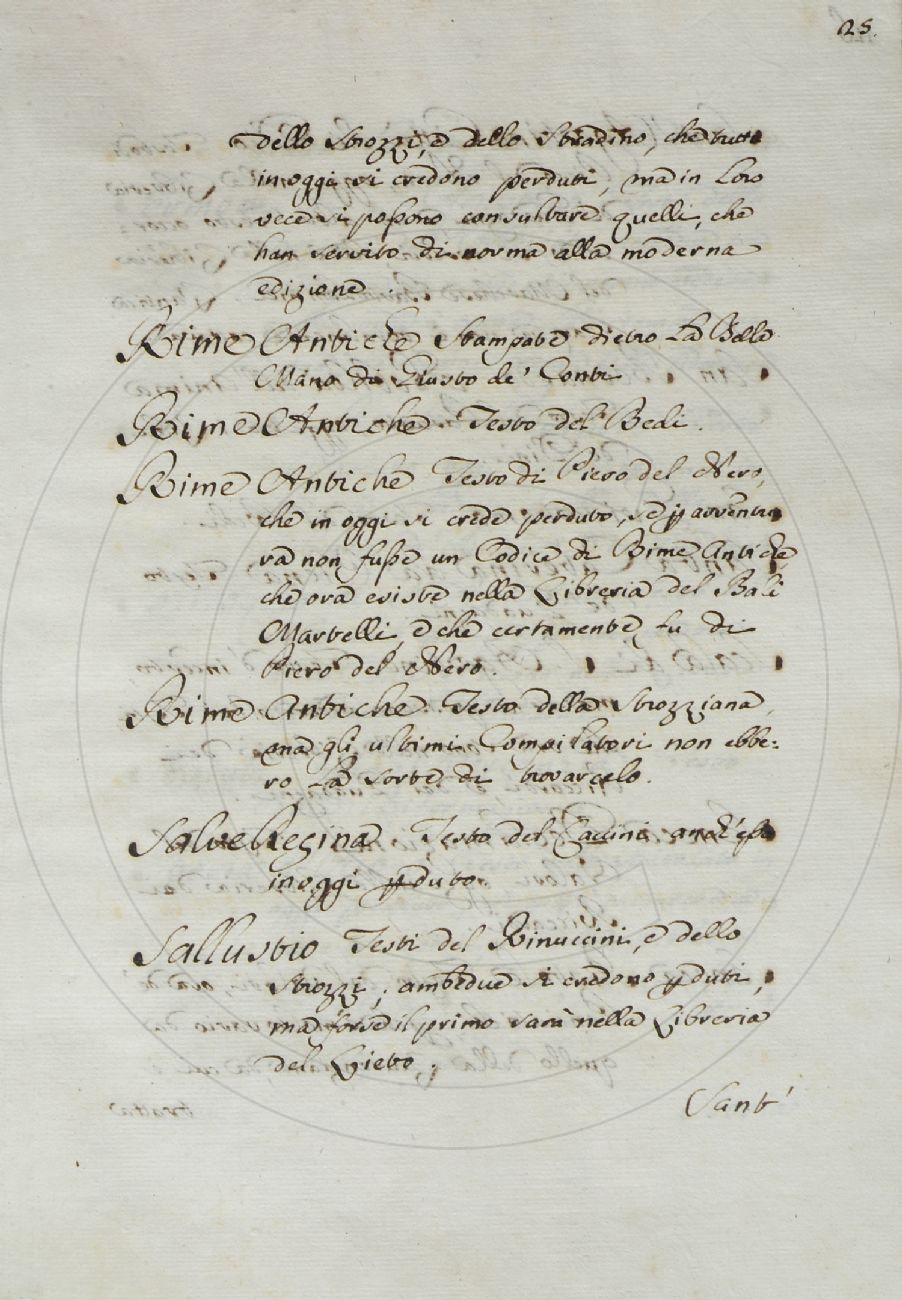 25.
dello Strozzi, e dello Stradino, che tutti
in oggi si credono perduti, ma in loro
vece si possono consultare quelli, che
han servito di norma alla moderna
edizione.
Rime Antiche Stampate dietro La Bella
Mano di Giusto de' Conti
Rime Antiche Testo del Redi.
Rime Antiche Testo di Piero del Nero,
che in oggi si crede perduto, se p avventu
ra non fusse un Codice di Rime Antiche,
che ora esiste nella Libreria del Balì
Martelli, e che certamente fu di
Piero del Nero.
Rime Antiche Testo della Strozziana,
ma gli ultimi Compilatori non ebbe:
ro La sorte di trovarcelo.
Salve Regina Testo del Caccini anch'esso
in oggi pduto
Sallustio Testi del Rinuccini, e dello
Strozzi; ambedue si credono pduti,
ma forse il primo sarà nella Libreria
del
Sant'